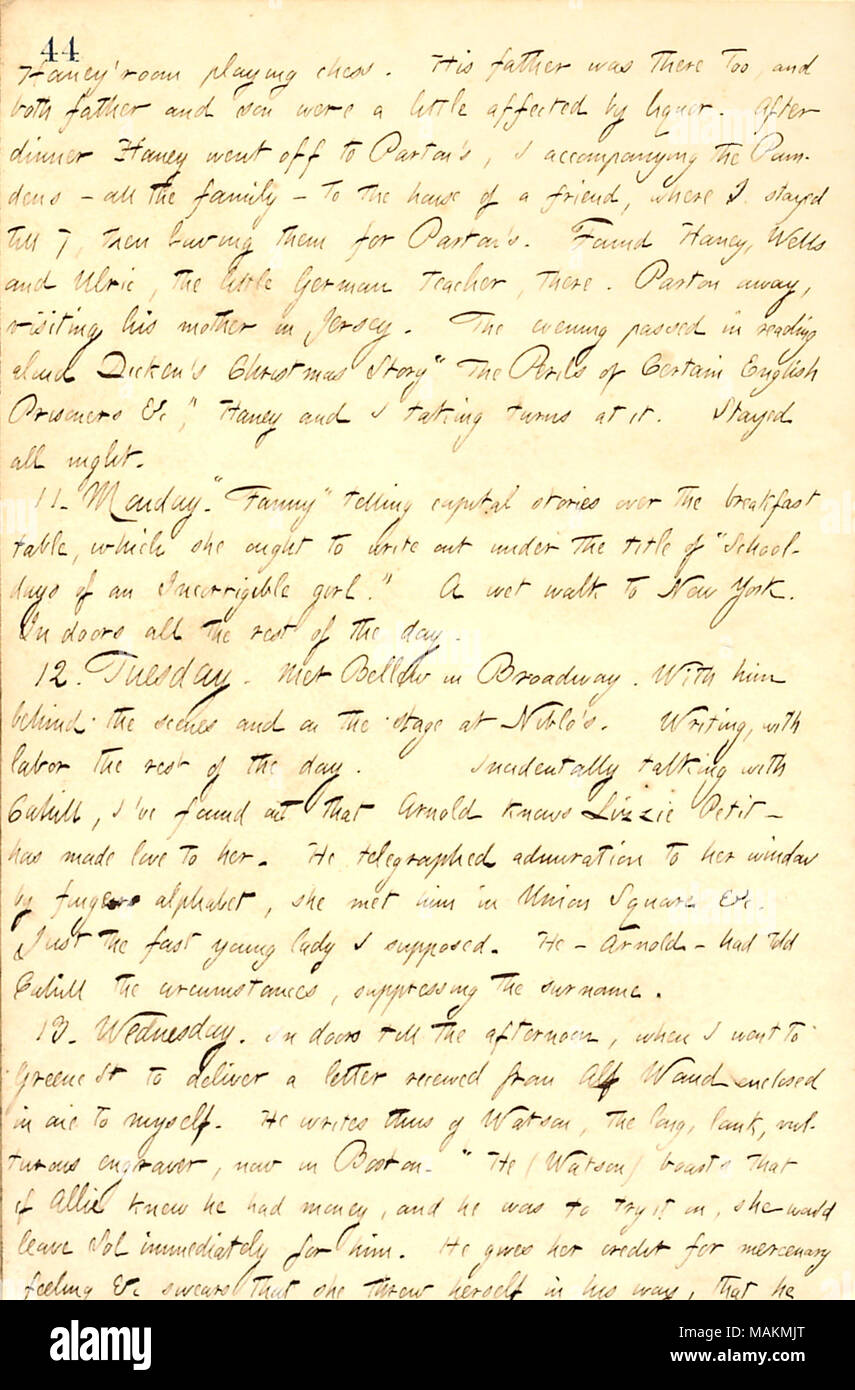 44
Haney' room playing chess. His father was there too, and
both father and son were a little affected by liquor. After
dinner Haney went off to Parton's, I accompanying the Pum-
dens — all the family — to the house of a friend, where I stayed
till 7, then leaving them for Parton's. Found Haney, Wells
and Ulric, the little German teacher, there. Parton away,
visiting his mother in Jersey. The evening passed in reading
aloud Dicken's Christmas Story "The Perils of Certain English
Prisoners &c," Haney and I taking turns at it. Stayed
all night.
11. Monday. "Fanny" telling capital stories over the breakfast
table, which she ought to write out under the title of "School-
days of an Incorrigible girl." A wet walk to New York.
In doors all the rest of the day.
12. Tuesday. Met Bellew in Broadway. With him
behind the scenes and on the stage at Niblo's. Writing, with
labor the rest of the day. Incidentally talking with
Cahill, I've found out that Arnold knows Lizzie Petit —
has made love to her. He telegraphed admiration to her window
by finger alphabet, she met him in Union Square &c.
Just the fast young lady I supposed. He — Arnold — had told
Cahill the circumstances, suppressing the surname.
13. Wednesday. In doors till the afternoon, when I went to
Greene St to deliver a letter received from Alf Waud enclosed
in one to myself. He writes thus of Watson, the long, lank, vul-
turous engraver, now in Boston. "He (Watson) boasts that
if Allie knew he had money, and he was to try it on, she would
leave Sol immediately for him. He gives her credit for mercenary
feeling &c swears that she threw herself in his way, that he
alamy
Image ID: MAKMJT
www.alamy.com